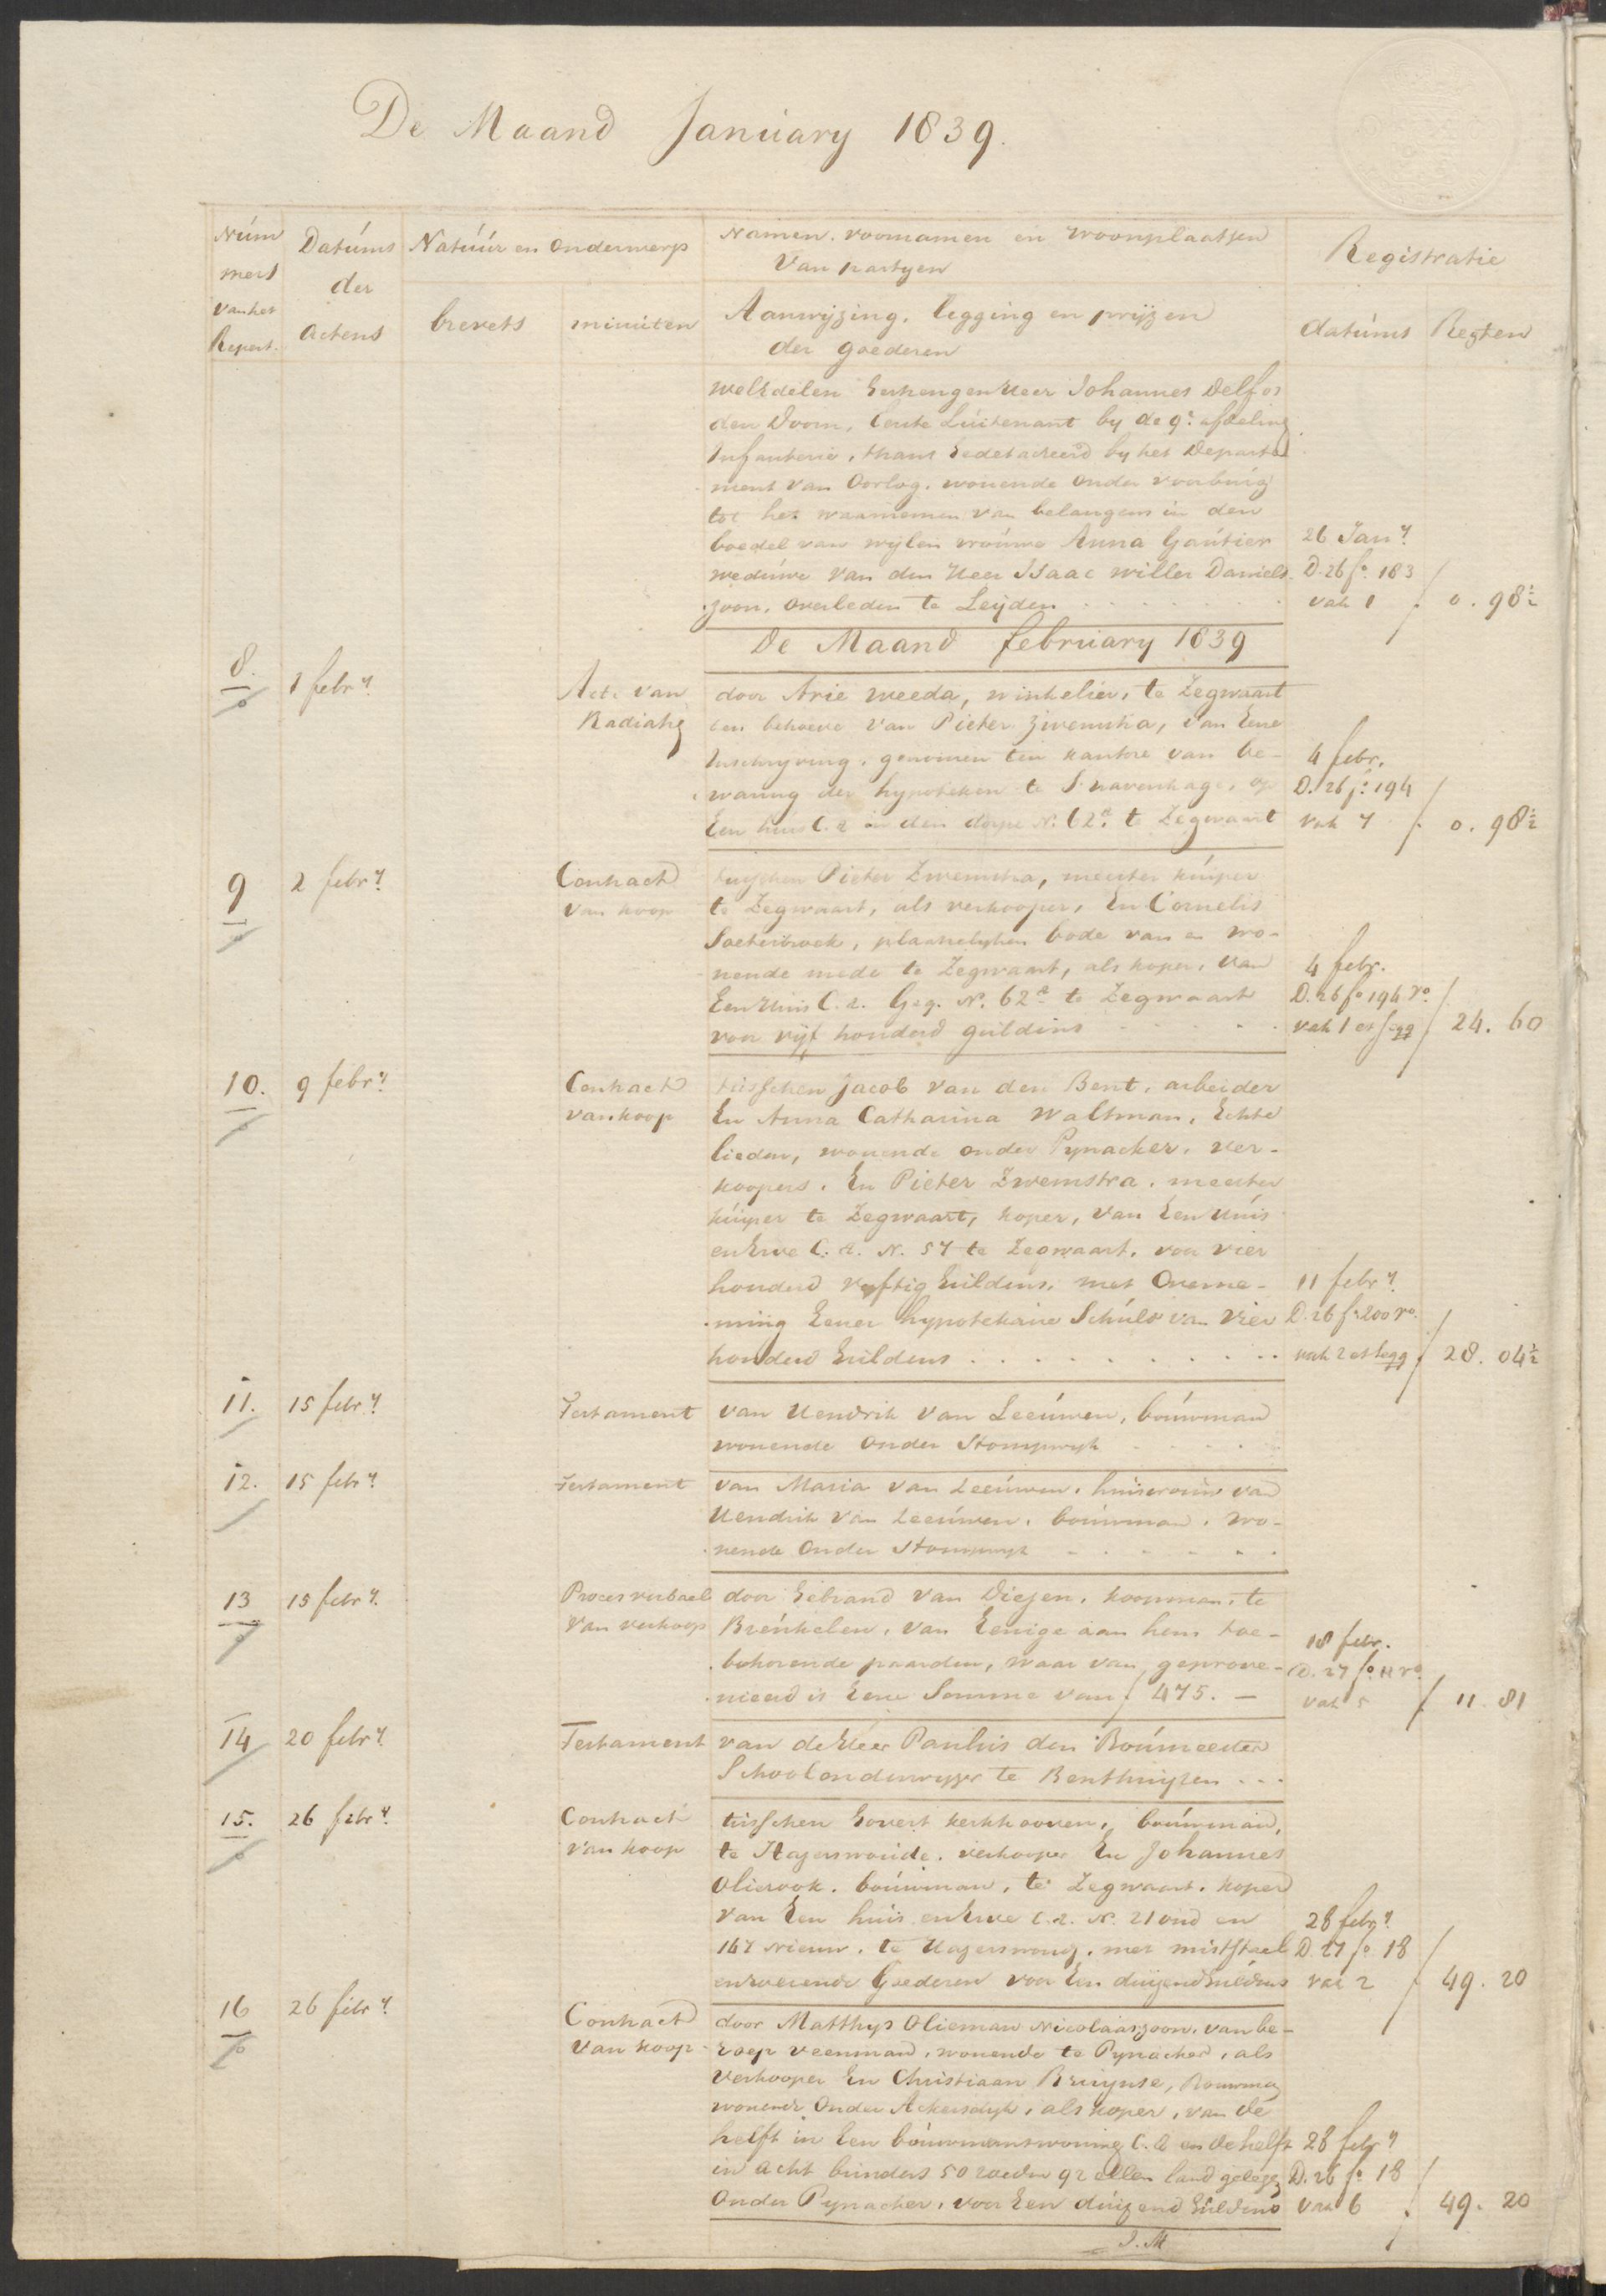 De Maand January 1839.
Núm
mers
van het
Repert.
Datúms
der
actens
Natúúr en onderwerp
brevets
minúten
Namen, voornamen en woonplaatsen
van partyen
Aanwyzing, legging en pryzen
der goederen
Registratie
datúms
Regten
welEdelen GestrengenHeer Johannes Delfos
den Doorn, Eerste Lúitenant by de 9e afdeling
Infanterie, thans Gedetacheerd by het Departe
ment van Oorlog, wonende onder voorbúrg
tot het waarnemen van belangens in den
boedel van wylen vroúwe Anna Gaútier
wedúwe van den Heer ISaac willer Daniels
zoon, overleden te Leyden
26 Jany.
D. 26 fo. 183
vak 1
0. 98½
De Maand february 1839
8.
1 febry.
Acte van
Radiatie
door Arie weeda, winkelier, te Zegwaart
ten behoeve van Pieter Zwemstra, van Eene
Inschryving, genomen ten kantore van be-
waring der hypoteken te Sravenhage, op
Een huis C.a. in den dorpe N. 62a. te Zegwaart
4 febr.
D. 26 fo. 194
vak 7
0. 98½
9
2 febry.
Contract
van koop
tusschen Pieter Zwemstra, meester kúiper
te Zegwaart, als verkooper, En Cornelis
Soeterbroek, plaatselyken bode van en wo-
nende mede te Zegwaart, als koper, van
EenHuis C.a. Geq. N. 62a te Zegwaart
voor vyf honderd guldens
4 febr.
D. 26 fo 194 vo.
vak 1 et seqq
24. 60
10.
9 febry.
Contract
van koop
tusschen Jacob van den Bent, arbeider
En Anna Catharina Waltman, Echte
lieden, wonende onder Pynacker, ver-
koopers, En Pieter Zwemstra, meester
kúiper te Zegwaart, koper, van EenHúis
enErve C.a. N. 57 te Zegwaart, voor vier
honderd vyftig Guldens, met Overne-
ming Eener hypotekaire Schúld van Vier
honderd Guldens
11 febry.
D. 26 fo 200 vo.
vak 2 et seqq
28. 04½
11.
15 febry.
Testament
van Hendrik van Leeúwen, boúwman
wonende onder Stompwyk
12.
15 febry.
Testament
van Maria van Leeúwen, huisvrouw van
Hendrik van Leeúwen, boúwman, wo-
nende onder Stompwyk
13
15 febry.
Proces verbaal
van verkoop
door Gebrand van Diejen, koopman, te
Breúkelen, van Eenige aan hem toe-
behorende paarden, waar van geprove-
nieerd is Eene Somme van f 475. —
18 febr.
D. 27 fo. 11 vo.
vak 5
11. 81
14
20 febry.
Testament
van deHeer Paulus den Boúmeester
Schoolonderwyzer te Benthuyzen
15.
26 febry.
Contract
van koop
tusschen Govert kerkhoven, boúwman,
te Hazerswoúde, verkooper En Johannes
Olierook, boúwman, te Zegwaart, koper
van Een húis enErve C.a. N. 21 oud en
167 Nieuw, te Hazerswoude, met miststael
enroerende Goederen voor Een duizendGuldens
28 febry.
D. 27 fo 18
vak 2
49. 20
16
26 febry.
Contract
van koop
door Matthys Olieman Nicolaaszoon, van be-
roep veenman, wonende te Pynacker, als
verkooper En Christiaan Bruynse, Bouwman
wonende onder Ackersdyk, als koper, van de
helft in Een boúwmanswoning C.a. en de helft
in acht bunders 50 roeden 92 ellen land gelegen
onder Pynacker, voor Een dúizend Guldens
28 febry
D. 26 fo 18
vak 6
49. 20
J. M